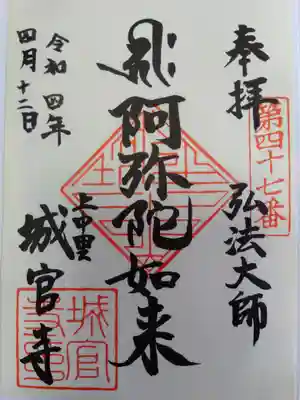 奉拝
第四十七番
弘法大師
阿弥陀如来
上中里
城官寺
令和四年
四月十二日
城官